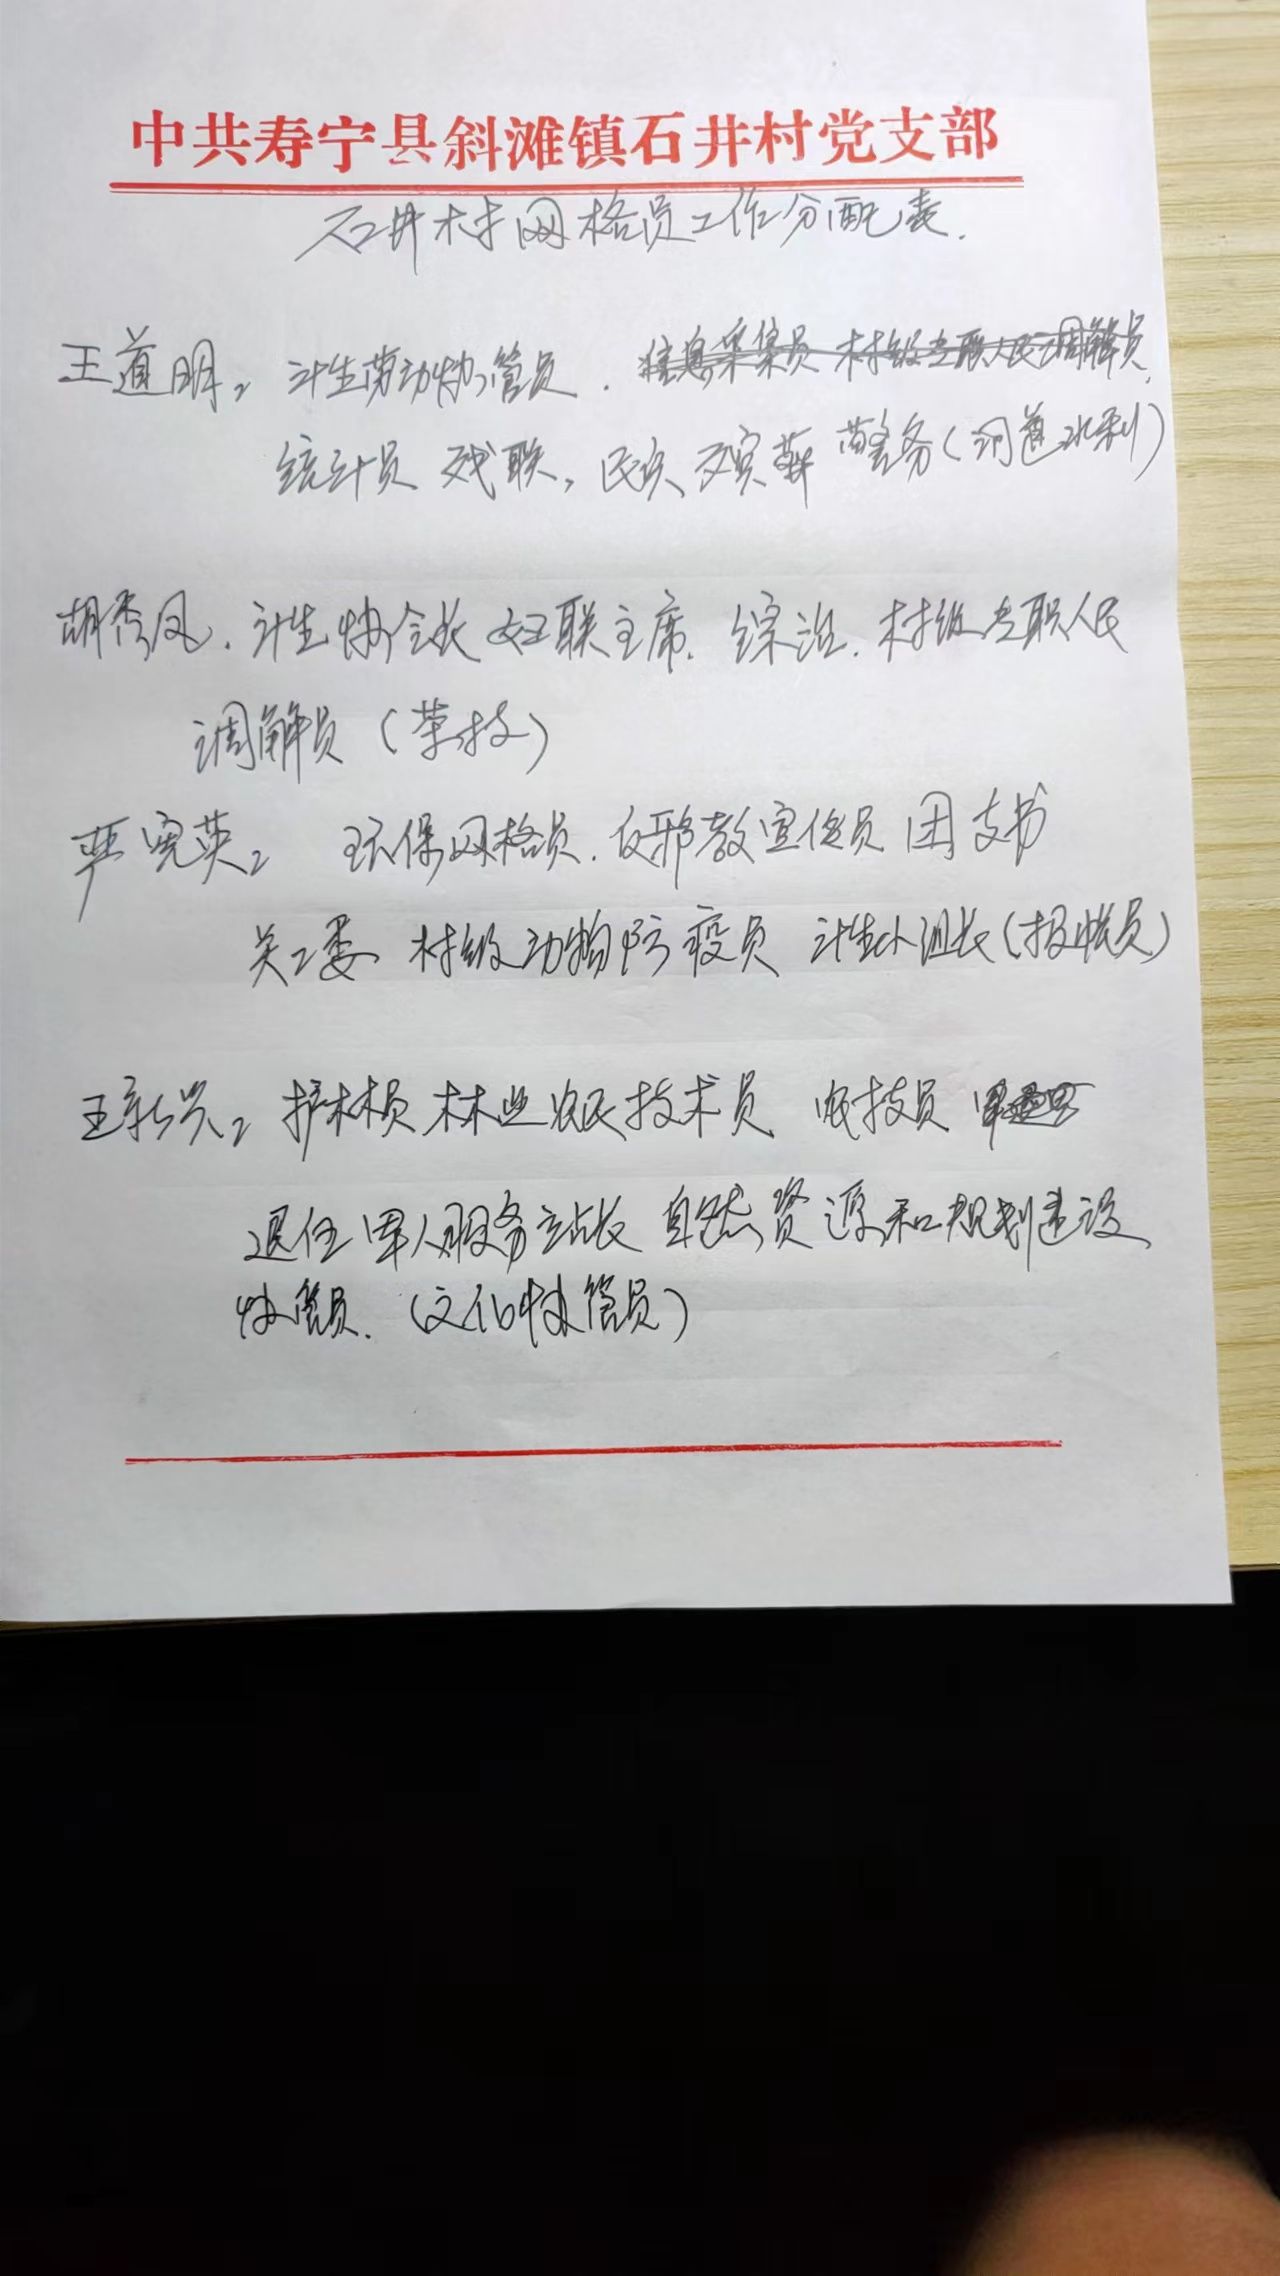 中共寿宁县斜滩镇石井村党支部
石井村网格员工作分配表.
王道明: 计生劳动协管员. 信息采集员 村级专职人民调解员
统计员 残联, 民兵 警务(河道水利)
胡秀凤. 计生协会长 妇联主席. 综治. 村级专职人民
调解员 (茶技)
严宪英: 环保网格员. 反邪教宣传员 团支书
关工委 村级动物防疫员 计生小组长(报账员)
王新兴: 护林员 林业农民技术员 农技员
退伍军人服务站长 自然资源和规划建设
协管员. (文化协管员)